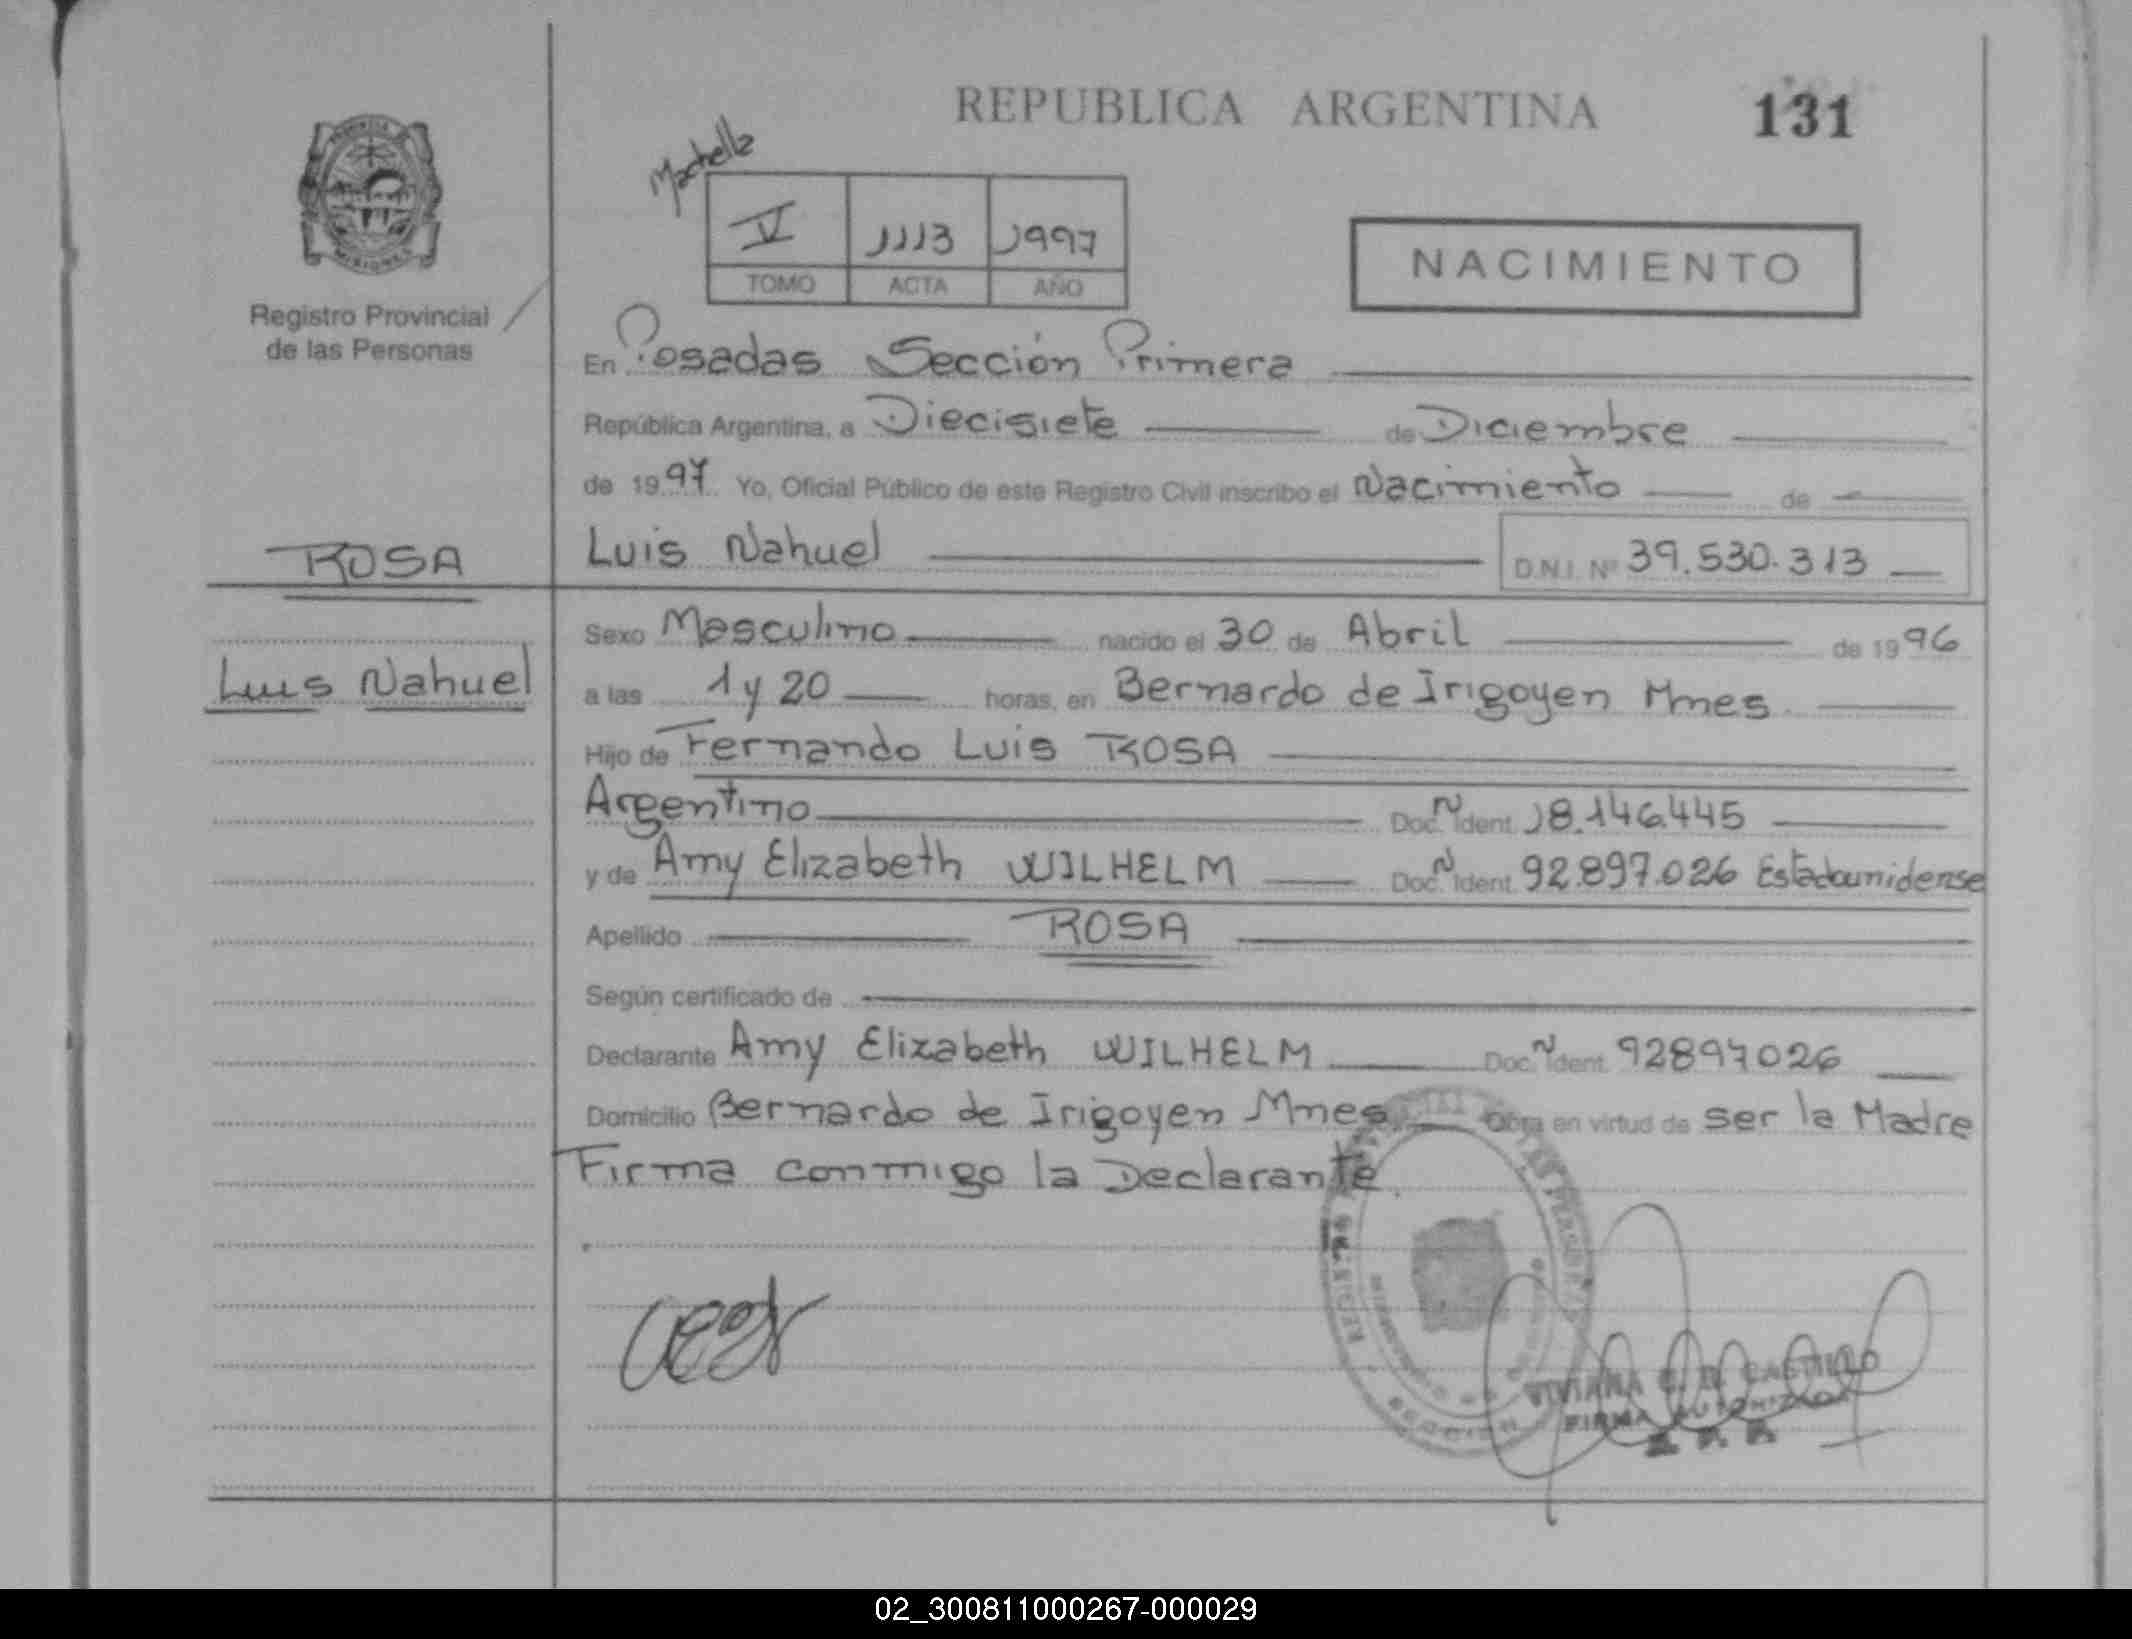 REPUBLICA ARGENTINA
131
V 1113 1997
TOMO ACTA AÑO
NACIMIENTO
MISIONES
Registro Provincial
de las Personas
En Posadas Sección Primera
República Argentina, a Diecisiete de Diciembre
de 1997 Yo, Oficial Público de este Registro Civil inscribo el Nacimiento de
ROSA
Luis Nahuel D.N.I. Nº 39.530.313
Sexo Masculino nacido el 30 de Abril de 1996
Luis Nahuel
a las 1 y 20 horas, en Bernardo de Irigoyen Mnes
Hijo de Fernando Luis ROSA
Argentino Doc. N Ident. 18.146.445
y de Amy Elizabeth WILHELM Doc. N Ident. 92.897.026 Estadounidense
Apellido ROSA
Según certificado de
Declarante Amy Elizabeth WILHELM Doc. N Ident. 92897026
Domicilio Bernardo de Irigoyen Mnes Obra en virtud de ser la Madre
Firma conmigo la Declarante
VIVIANA CASTILLO
FIRMA AUTORIZADA
02_300811000267-000029